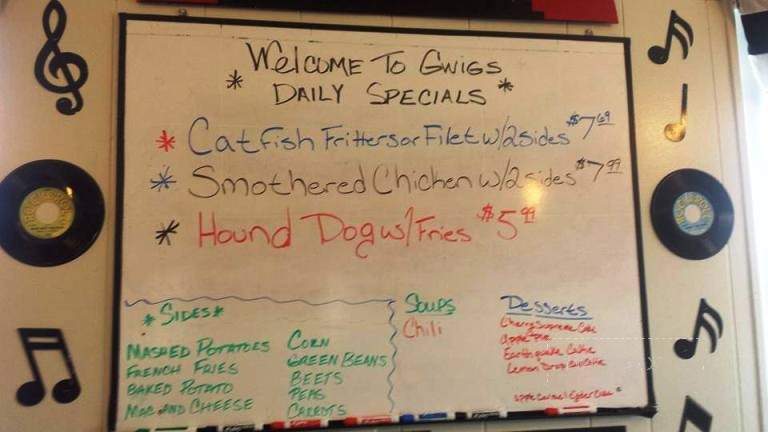 Welcome To Gwigs
* Daily Specials *
* Catfish Fritters or Filet w/2 sides $7.69
* Smothered Chicken w/2 sides $7.99
* Hound Dog w/Fries $5.99
*Sides*
Mashed Potatoes
French Fries
Baked Potato
Mac and Cheese
Corn
Green Beans
Beets
Peas
Carrots
Soups
Chili
Desserts
Cherry Supreme Cake
Apple Pie
Earthquake Cake
Lemon Drop
Apple Caramel